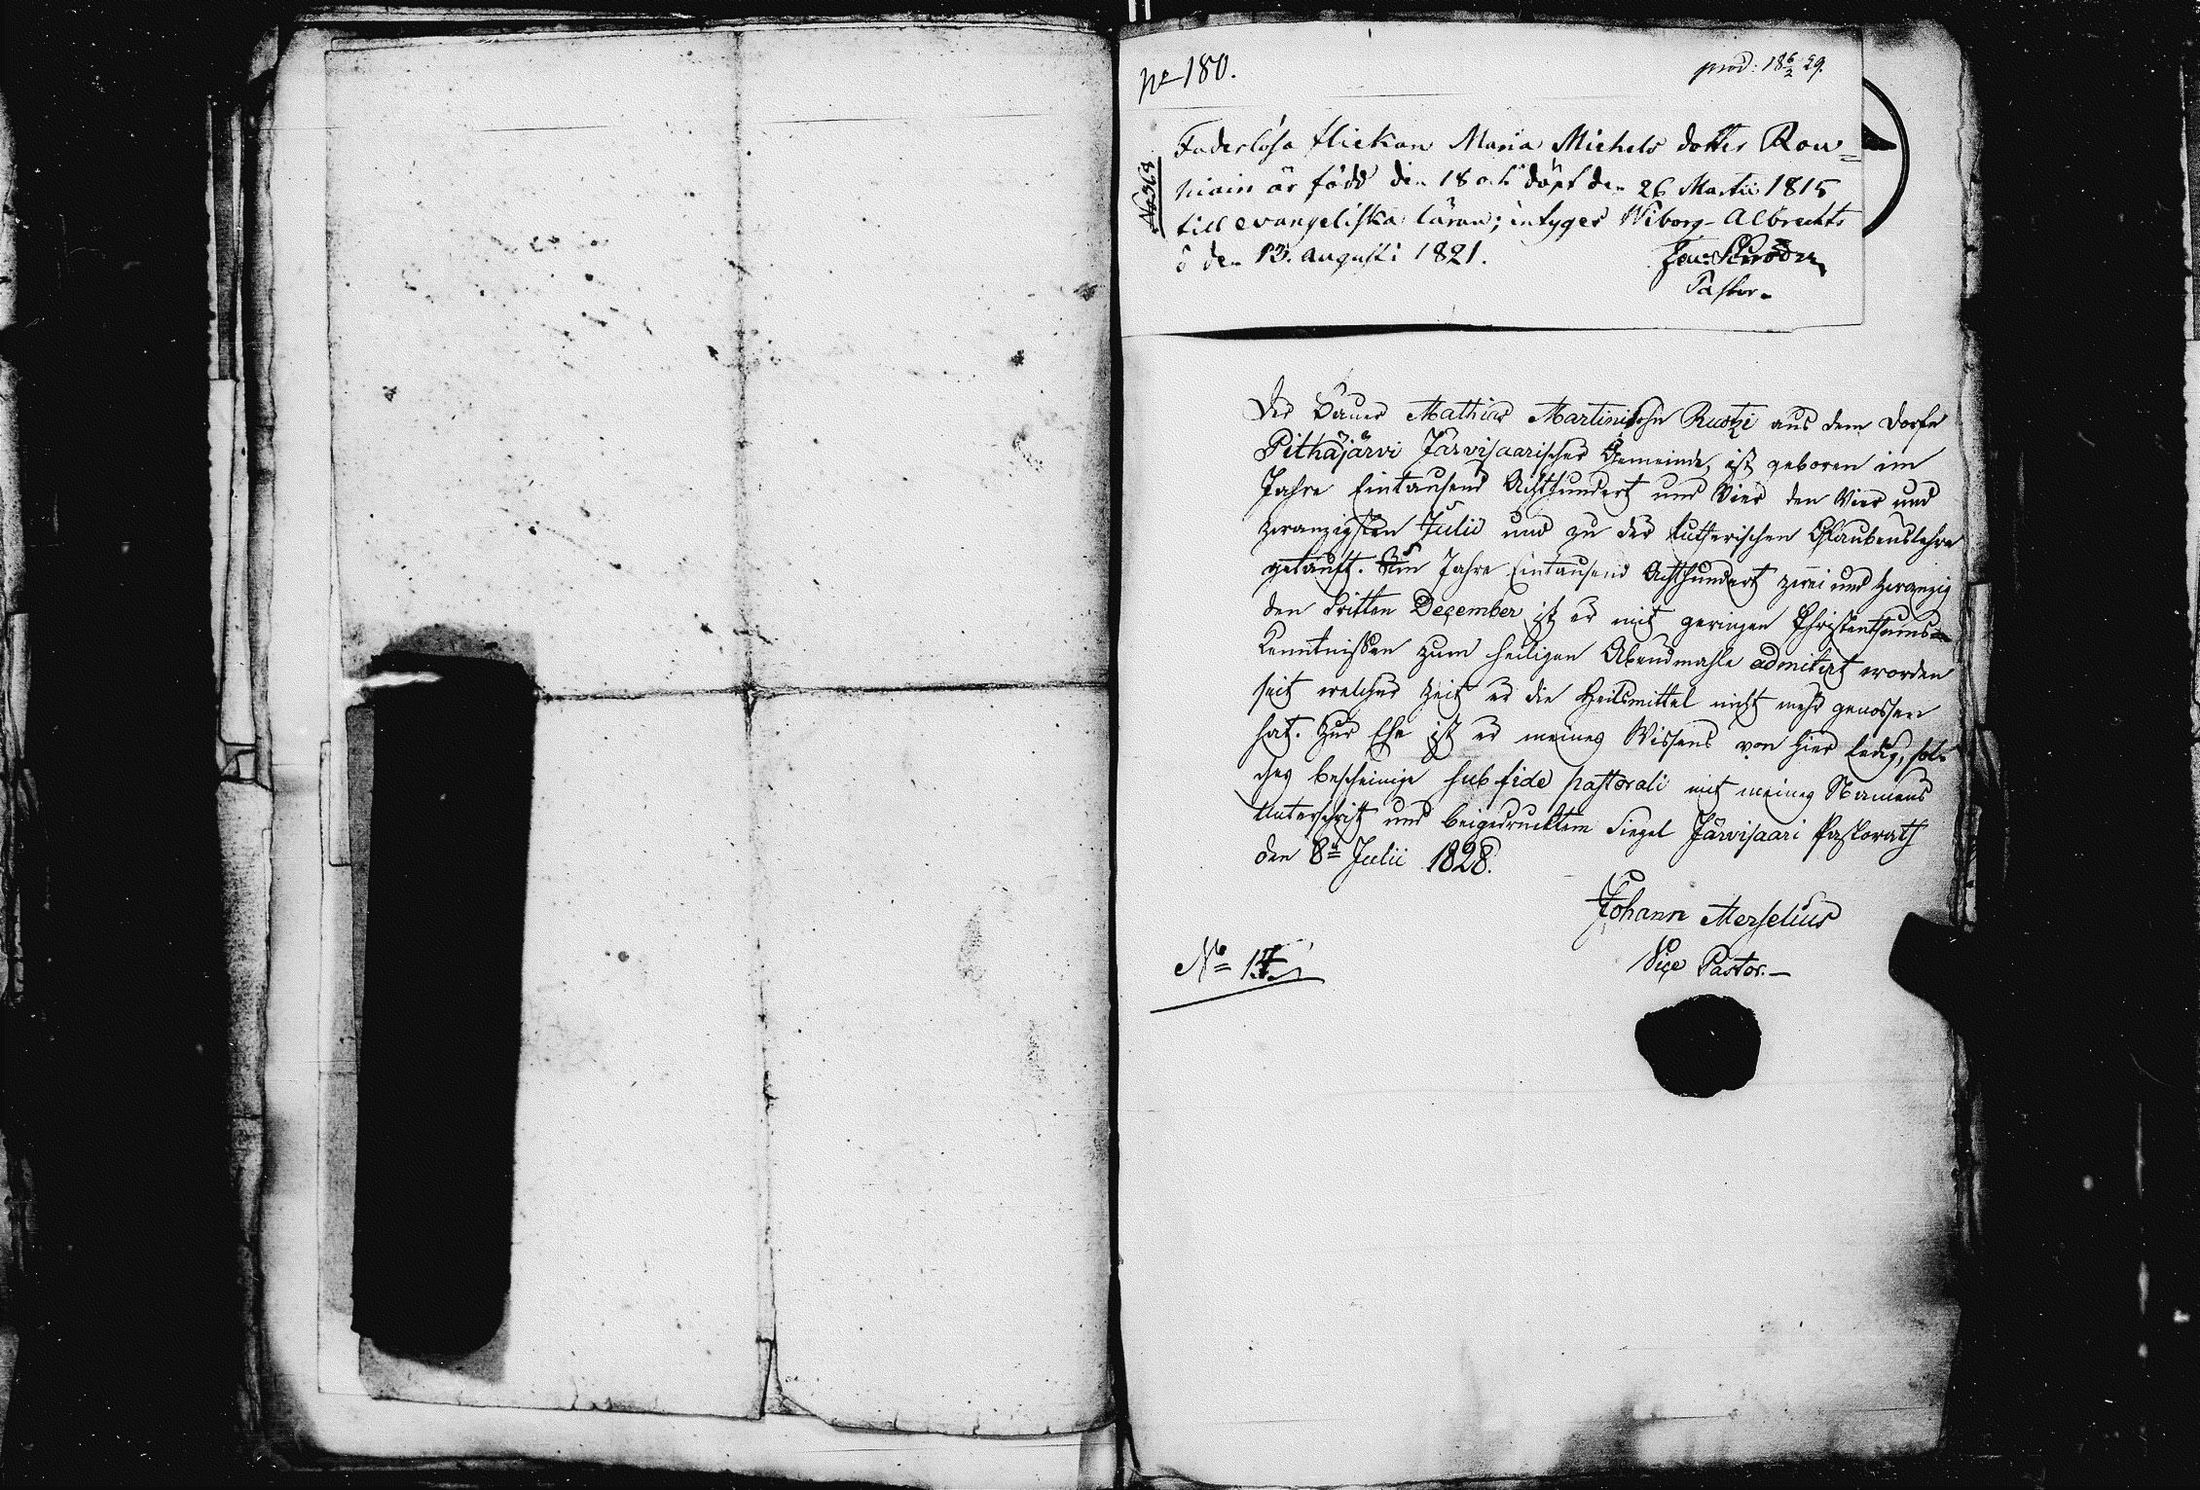 No 180.
prod: 18 6/2 29.
No 368
Faderlösa flickan Maria Michels dotter Rou=
niain är född den 18 och döpt den 26 Martii 1815
till evangeliska läran; intyges Wiborg Albrechts
ö den 13. augusti 1821.
Pastor.
Der Bauer Mathias Martinisohn Ruotzi aus dem Dorfe
Pithäjärvi Järvisaarischer Gemeinde, ist geboren im
Jahre Eintausend Achthundert und Vier den Vier und
zwanzigsten Julii und zu der Lutherischen Glaubenslehre
getauft. Im Jahre Eintausend Achthundert zwei und zwanzig
den dritten December ist er mit geringen Christenthums-
Kenntnissen zum heiligen Abendmahle admitirt worden
seit welcher Zeit er die Heilsmittel nicht mehr genossen
hat. Zur Ehe ist er meines Wissens von hier ledig, sol-
ches bescheinige sub fide pastorali mit meines Namens
Unterschrift und beigedrucktem Siegel Järvisaari Pastorath
den 8n Julii 1828.
Johann Merselius
Vice Pastor.—
No 17.